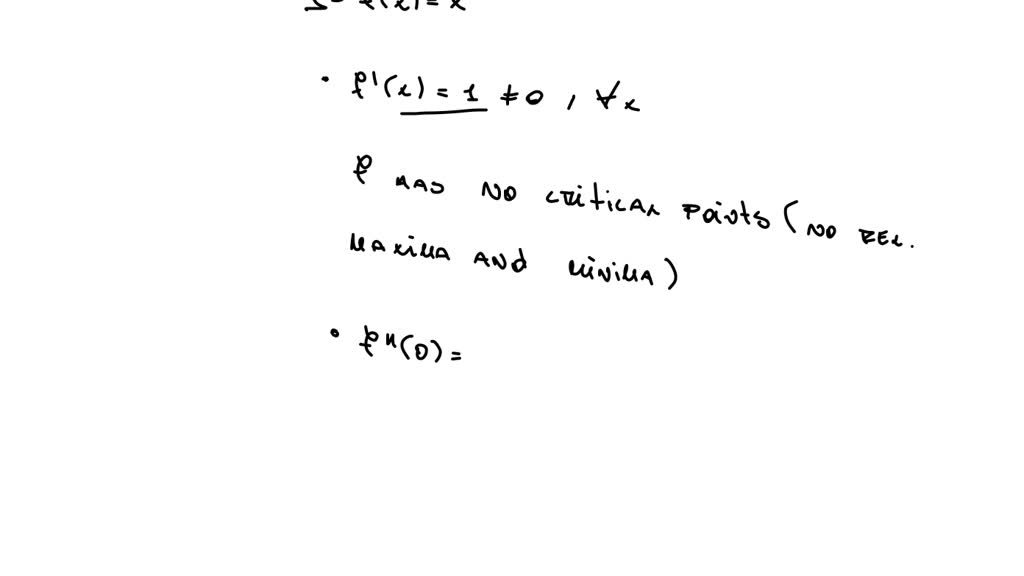 f(x) = x
• f'(x) = 1 ≠ 0 , ∀x
f HAS NO CRITICAL POINTS (NO REL.
MAXIMA AND MINIMA)
• f"(0) =